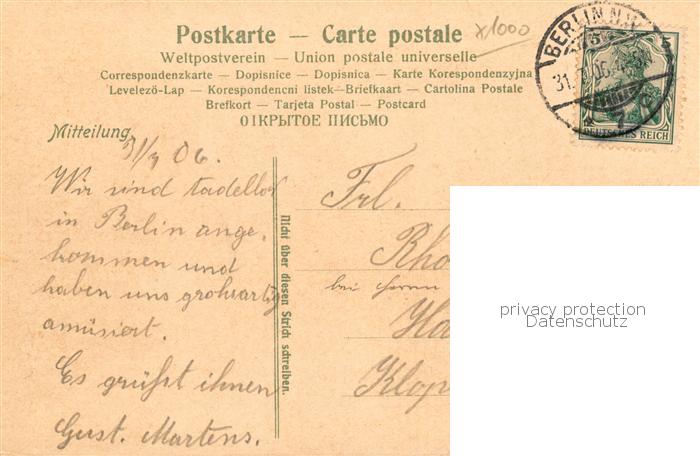 Postkarte — Carte postale
x1000
Weltpostverein — Union postale universelle
Correspondenzkarte — Dopisnice — Dopisnica — Karte Korespondenzyjna
Levelező-Lap — Korespondencni listek — Briefkaart — Cartolina Postale
Brefkort — Tarjeta Postal — Postcard
ОТКРЫТОЕ ПИСЬМО
BERLIN N.W.
31.
06
* 7 c
5
DEUTSCHES REICH
Mitteilung
06.
Wir sind tadellos
in Berlin ange.
kommen und
haben uns großartig
amüsiert.
Es grüßt ihnen
Gust. Martens.
Nicht über diesen Strich schreiben.
Frl.
Rho
bei Herrn
Ha
Klop
privacy protection
Datenschutz